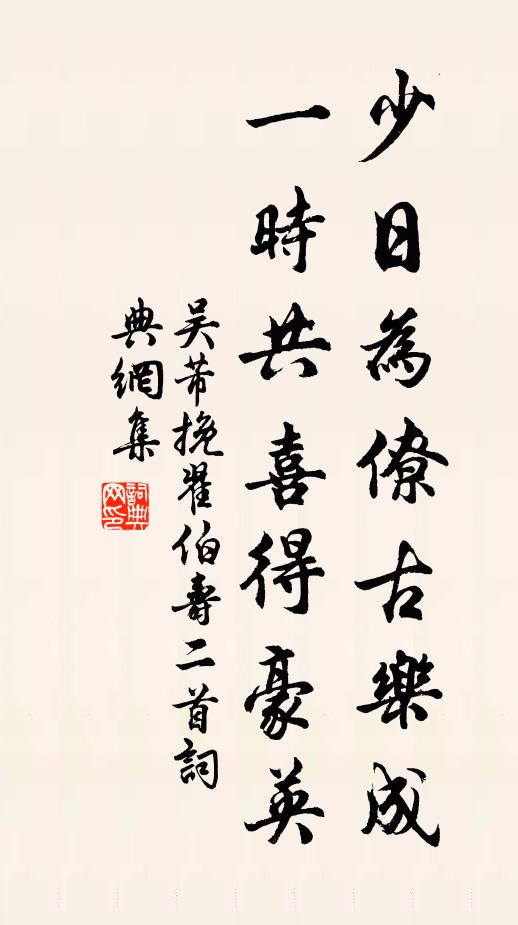 少日為僚古樂成
一時共喜得豪英
吳芾挽翟伯壽二首詞
典網集
詞典網印